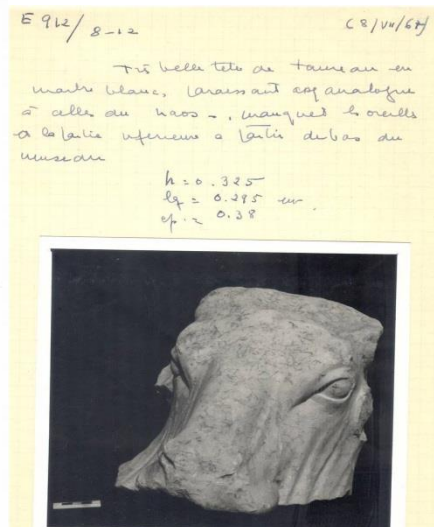 E 912/8-12 (8/VII/67)
Très belle tete de taureau en
marbre blanc, paraissant assez analogue
à celles du naos, manquent les oreilles
et la partie inferieure a partir du bas du
museau
h = 0.325
lg = 0.295 env.
ep. = 0.38